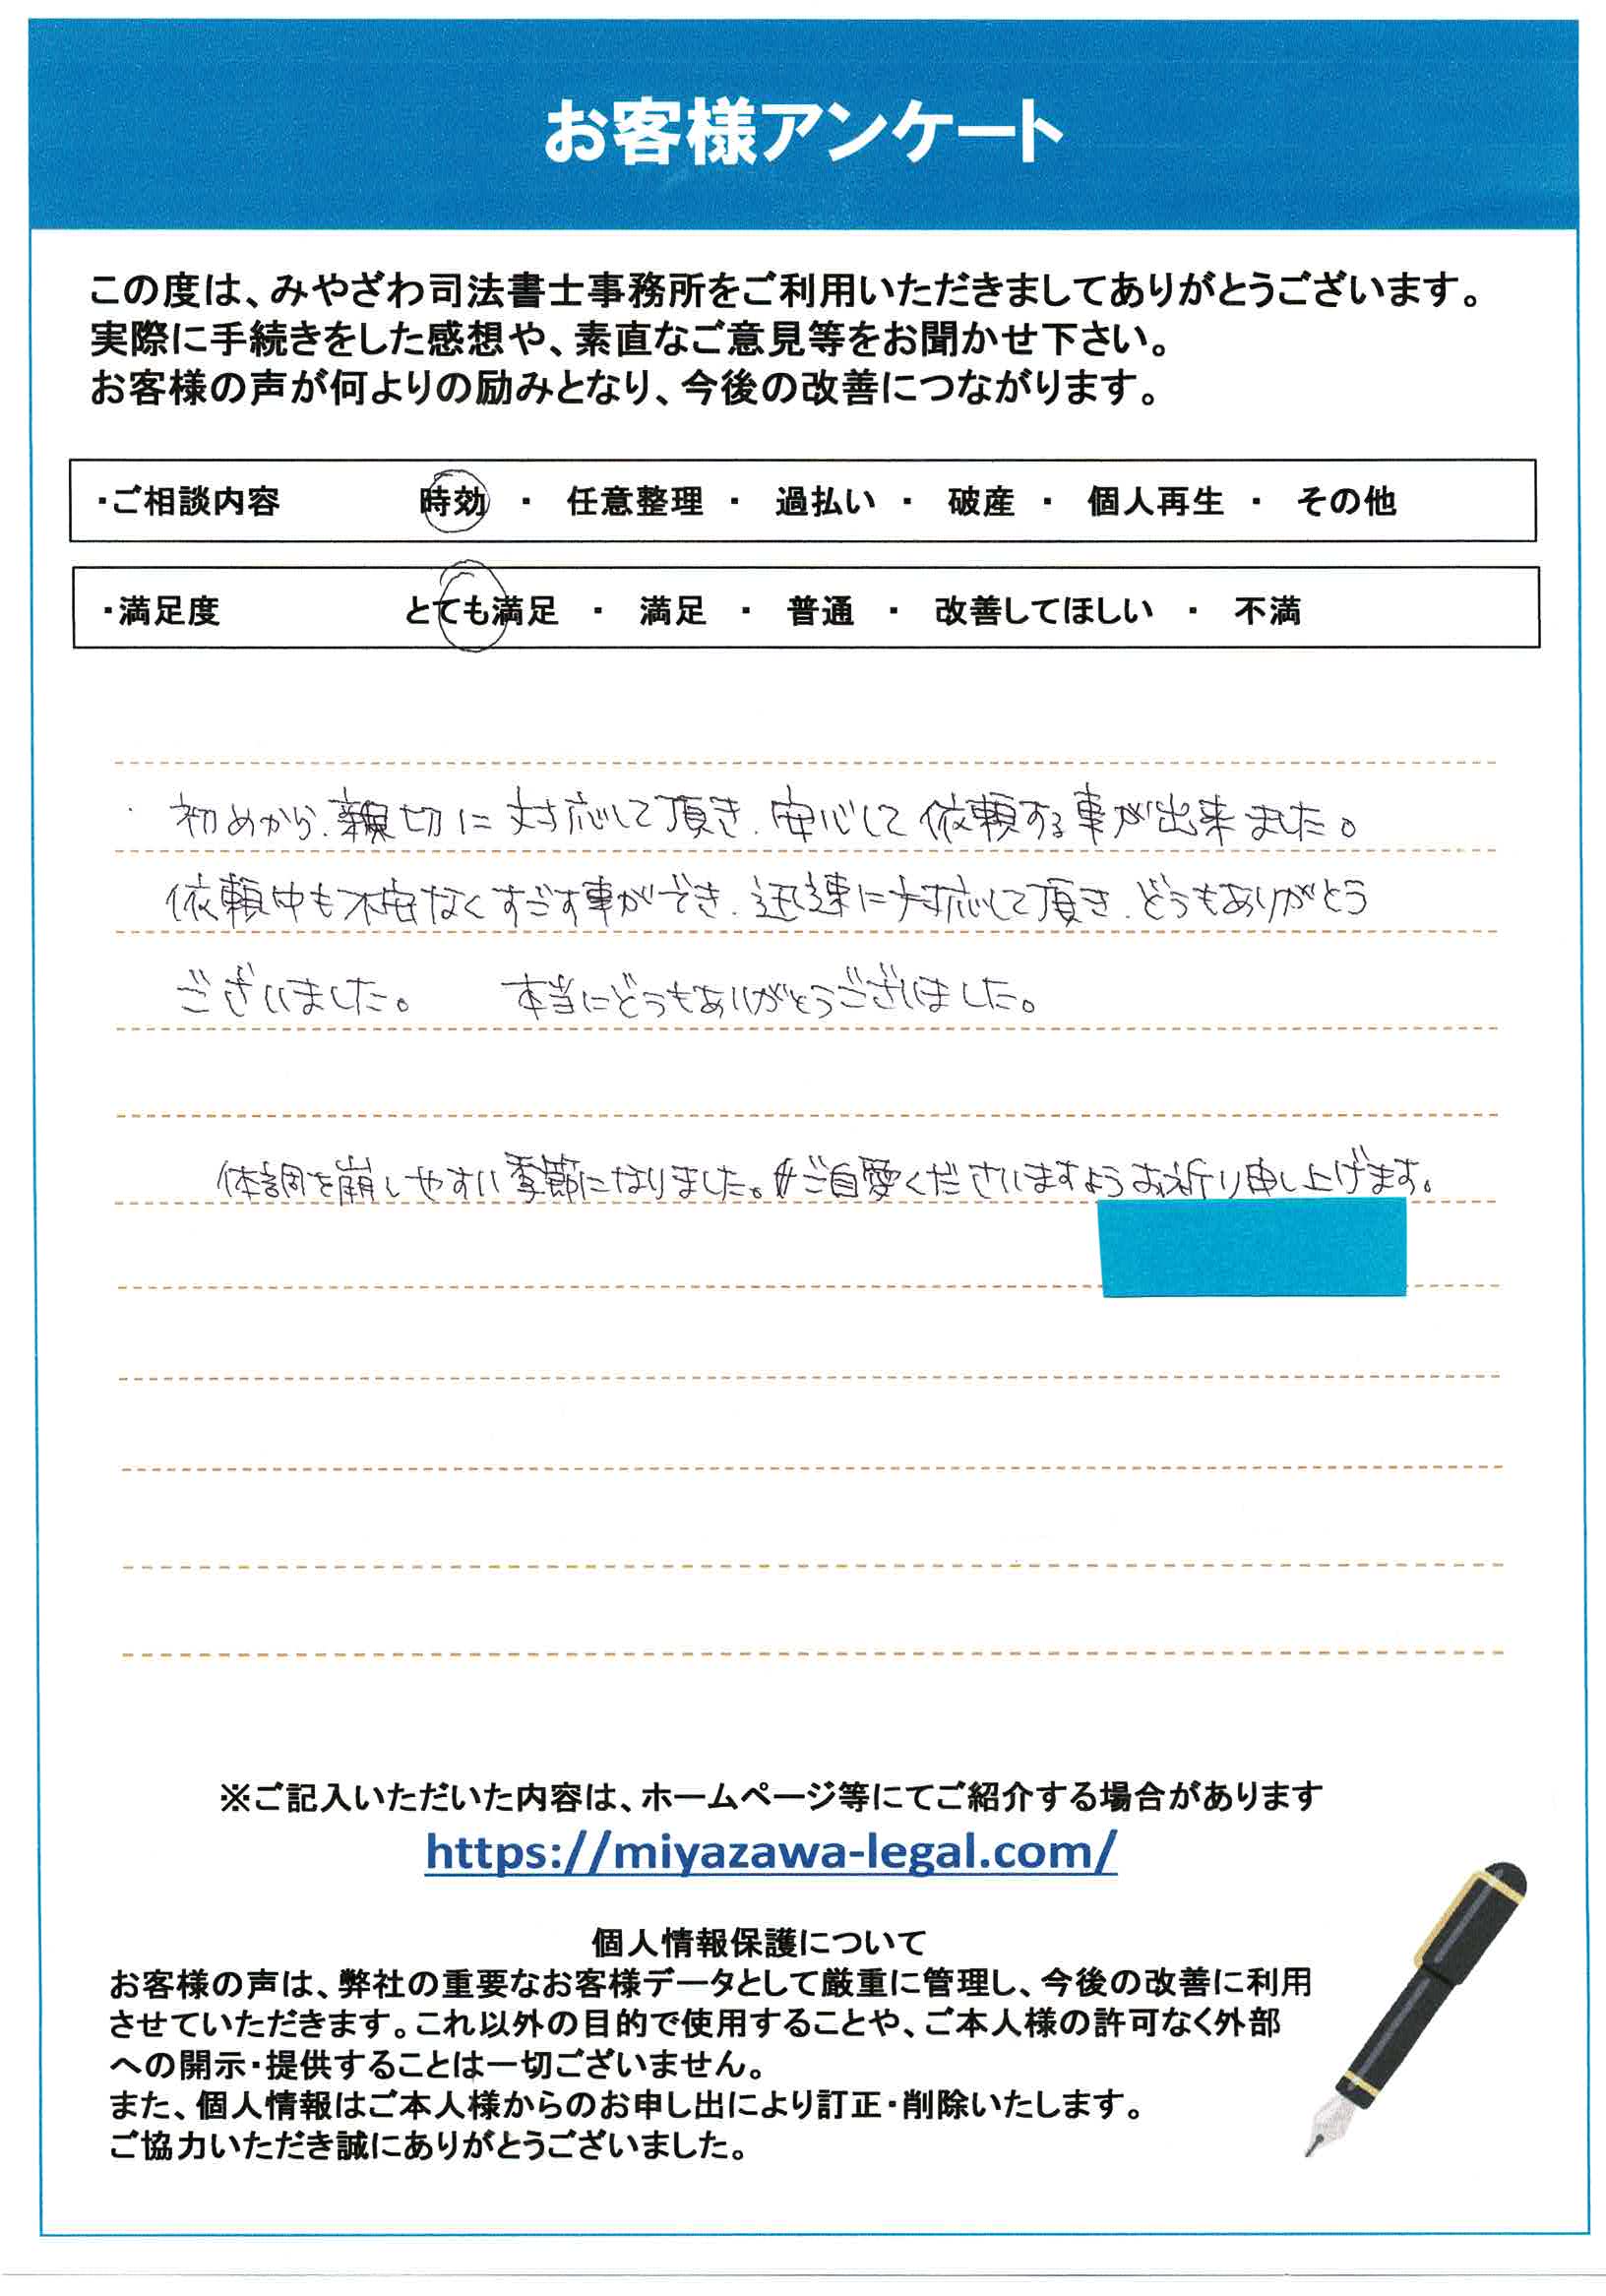 お客様アンケート
この度は、みやざわ司法書士事務所をご利用いただきましてありがとうございます。
実際に手続きをした感想や、素直なご意見等をお聞かせ下さい。
お客様の声が何よりの励みとなり、今後の改善につながります。
・ご相談内容 時効 ・ 任意整理 ・ 過払い ・ 破産 ・ 個人再生 ・ その他
・満足度 とても満足 ・ 満足 ・ 普通 ・ 改善してほしい ・ 不満
初めから、親切に対応して頂き、安心して依頼する事が出来ました。
依頼中も不安なくすごす事ができ、迅速に対応して頂き、どうもありがとう
ございました。 本当にどうもありがとうございました。
体調を崩しやすい季節になりました。ご自愛くださいますようお祈り申し上げます。
※ご記入いただいた内容は、ホームページ等にてご紹介する場合があります
https://miyazawa-legal.com/
個人情報保護について
お客様の声は、弊社の重要なお客様データとして厳重に管理し、今後の改善に利用
させていただきます。これ以外の目的で使用することや、ご本人様の許可なく外部
への開示・提供することは一切ございません。
また、個人情報はご本人様からのお申し出により訂正・削除いたします。
ご協力いただき誠にありがとうございました。